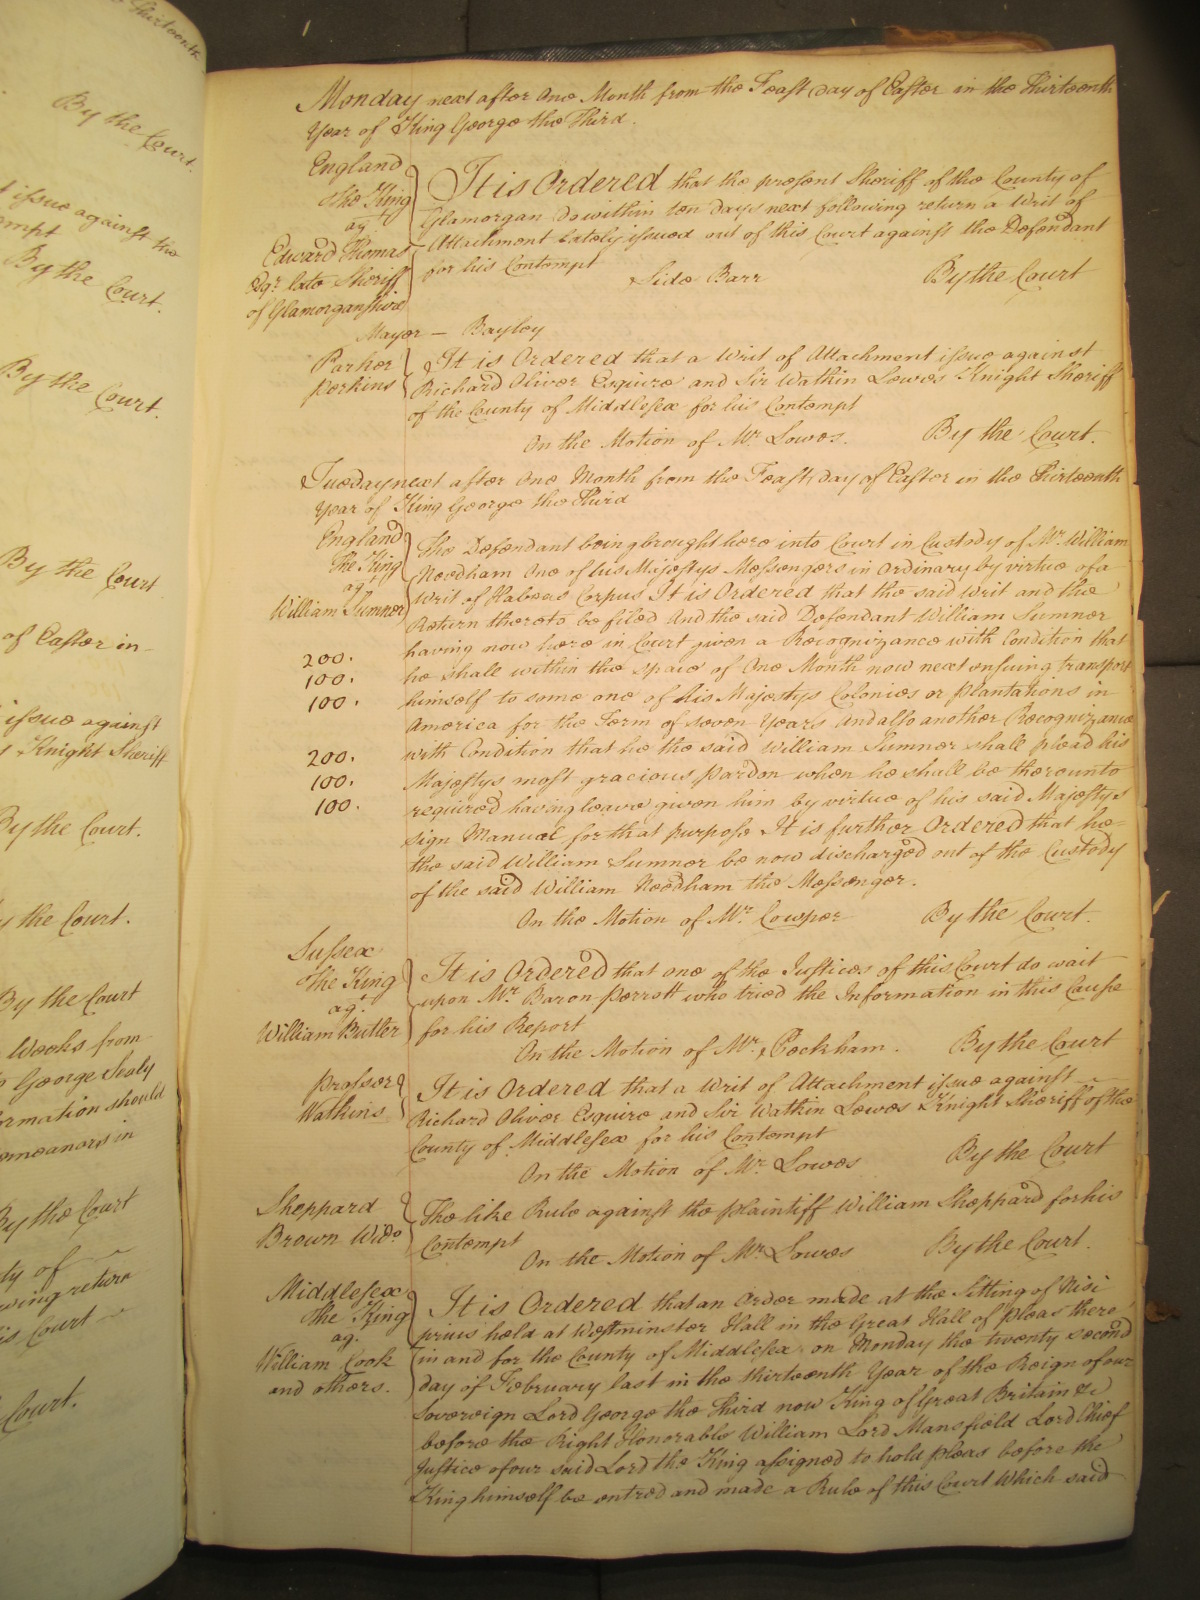 Thirteenth
By the Court.
t issue against the
empt
By the Court.
By the Court.
By the Court
of Easter in
issue against
Knight Sheriff
By the Court.
y the Court.
By the Court
Weeks from
George Sealy
ormation should
emeanors in
By the Court
ty of
wing return
is Court
Court.
Monday next after One Month from the Feast day of Easter in the Thirteenth
Year of King George the Third.
England
The King
agt
Edward Thomas
Esqr. late Sheriff
of Glamorganshire
It is Ordered that the present Sheriff of the County of
Glamorgan do within ten days next following return a Writ of
Attachment lately issued out of this Court against the Defendant
for his Contempt
Side Barr By the Court
Mayor — Bayley
Parker
Perkins
It is Ordered that a Writ of Attachment issue against
Richard Oliver Esquire and Sir Watkin Lewes Knight Sheriff
of the County of Middlesex for his Contempt
On the Motion of Mr. Lowes. By the Court.
Tueday next after One Month from the Feast day of Easter in the Thirteenth
Year of King George the Third
England
The King
agt
William Sumner
200.
100.
100.
200.
100.
100.
The Defendant being brought here into Court in Custody of Mr. William
Needham One of his Majestys Messengers in Ordinary by virtue of a
Writ of Habeas Corpus It is Ordered that the said Writ and the
Return thereto be filed And the said Defendant William Sumner
having now here in Court given a Recognizance with Condition that
he shall within the space of One Month now next ensuing transport
himself to some one of his Majestys Colonies or Plantations in
America for the Term of seven Years And also another Recognizance
with Condition that he the said William Sumner shall plead his
Majestys most gracious Pardon when he shall be thereunto
required having leave given him by virtue of his said Majestys
sign Manual for that purpose It is further Ordered that he
the said William Sumner be now discharged out of the Custody
of the said William Needham the Messenger.
On the Motion of Mr. Cowper By the Court.
Sussex
The King
agt.
William Butler
It is Ordered that one of the Justices of this Court do wait
upon Mr. Baron Perrott who tried the Information in this Cause
for his Report
On the Motion of Mr. Peckham. By the Court
Prosser
Watkins
It is Ordered that a Writ of Attachment issue against
Richard Oliver Esquire and Sir Watkin Lewes Knight Sheriff of the
County of Middlesex for his Contempt
On the Motion of Mr. Lowes By the Court
Sheppard
Brown Wido.
The like Rule against the Plaintiff William Sheppard for his
Contempt
On the Motion of Mr. Lowes By the Court.
Middlesex
The King
agt.
William Cook
and others.
It is Ordered that an Order made at the Sitting of Nisi
prius held at Westminster Hall in the Great Hall of Pleas there
in and for the County of Middlesex on Monday the twenty second
day of February last in the thirteenth Year of the Reign of our
Sovereign Lord George the Third now King of Great Britain &c
before the Right Honorable William Lord Mansfield Lord Chief
Justice of our said Lord the King assigned to hold Pleas before the
King himself be entred and made a Rule of this Court Which said